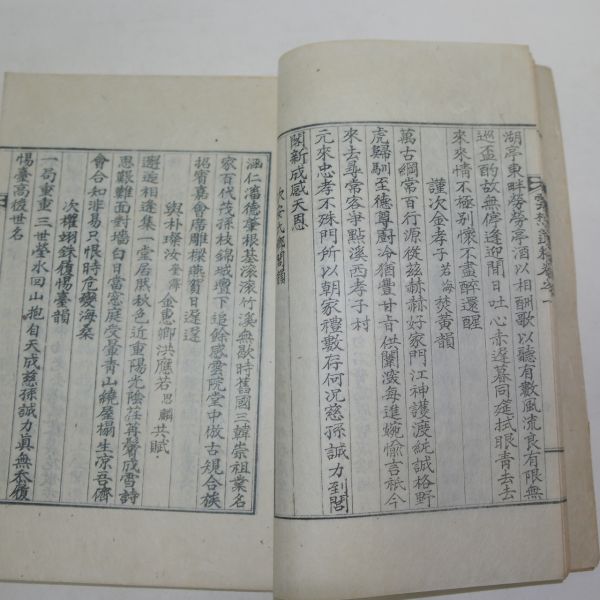 湖亭東畔勞勞亭酒以相酬歌以聽有數風流良有限無
巡盃酌故無停逢迎閒日吐心赤遲暮同筵拭眼靑去去
來來情不極別懷不盡醉還醒
謹次金孝子若海焚黃韻
萬古綱常百行源從玆赫赫好家門江神護渡純誠格野
虎歸馴至德尊厨冷猶豊甘旨供闌深每進婉愉言祇今
來去尋常客爭點溪西孝子村
元來忠孝不殊門所以朝家禮數存何況慈孫誠力到閭
閣新成感天恩
次安氏閣韻
涵仁潘德肇根基滚滚竹溪無歇時舊國三韓崇祖業名
家百代茂孫枝錦城壇下追餘感雲院堂中倣古規合族
招賓嘉會席雕樑燕賀日遲遲
與朴璨汝奎齊金惠卿洪應若思麟共賦
邂逅相逢集一堂居然秋色近重陽光陰荏苒鬢成雪詩
思艱難面對墻白日當窓庭受暈靑山繞屋榻生凉吾儕
會合知非易只恨時危變海桑
次權蝴銖履惕臺韻
一茍重重三世塋水回山抱自天成慈孫誠力眞無忝履
惕臺高後世名